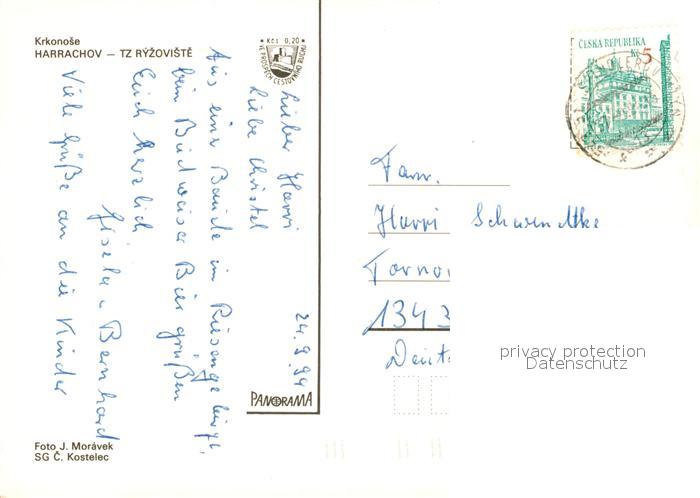 Krkonoše
HARRACHOV – TZ RÝŽOVIŠTĚ
Kčs 0,20
VE PROSPĚCH CESTOVNÍHO RUCHU
24.9.94
Lieber Harri
liebe Christel
Aus einer Baude im Riesengebirge,
beim Budweiser Bier grüßen
Euch herzlich
Gisela u Bernhard
Viele Grüße an die Kinder
PANORAMA
Foto J. Morávek
SG Č. Kostelec
ČESKÁ REPUBLIKA
Kč 5
Fam.
Harri Schwendtke
Tornо
1343
Deut
privacy protection
Datenschutz